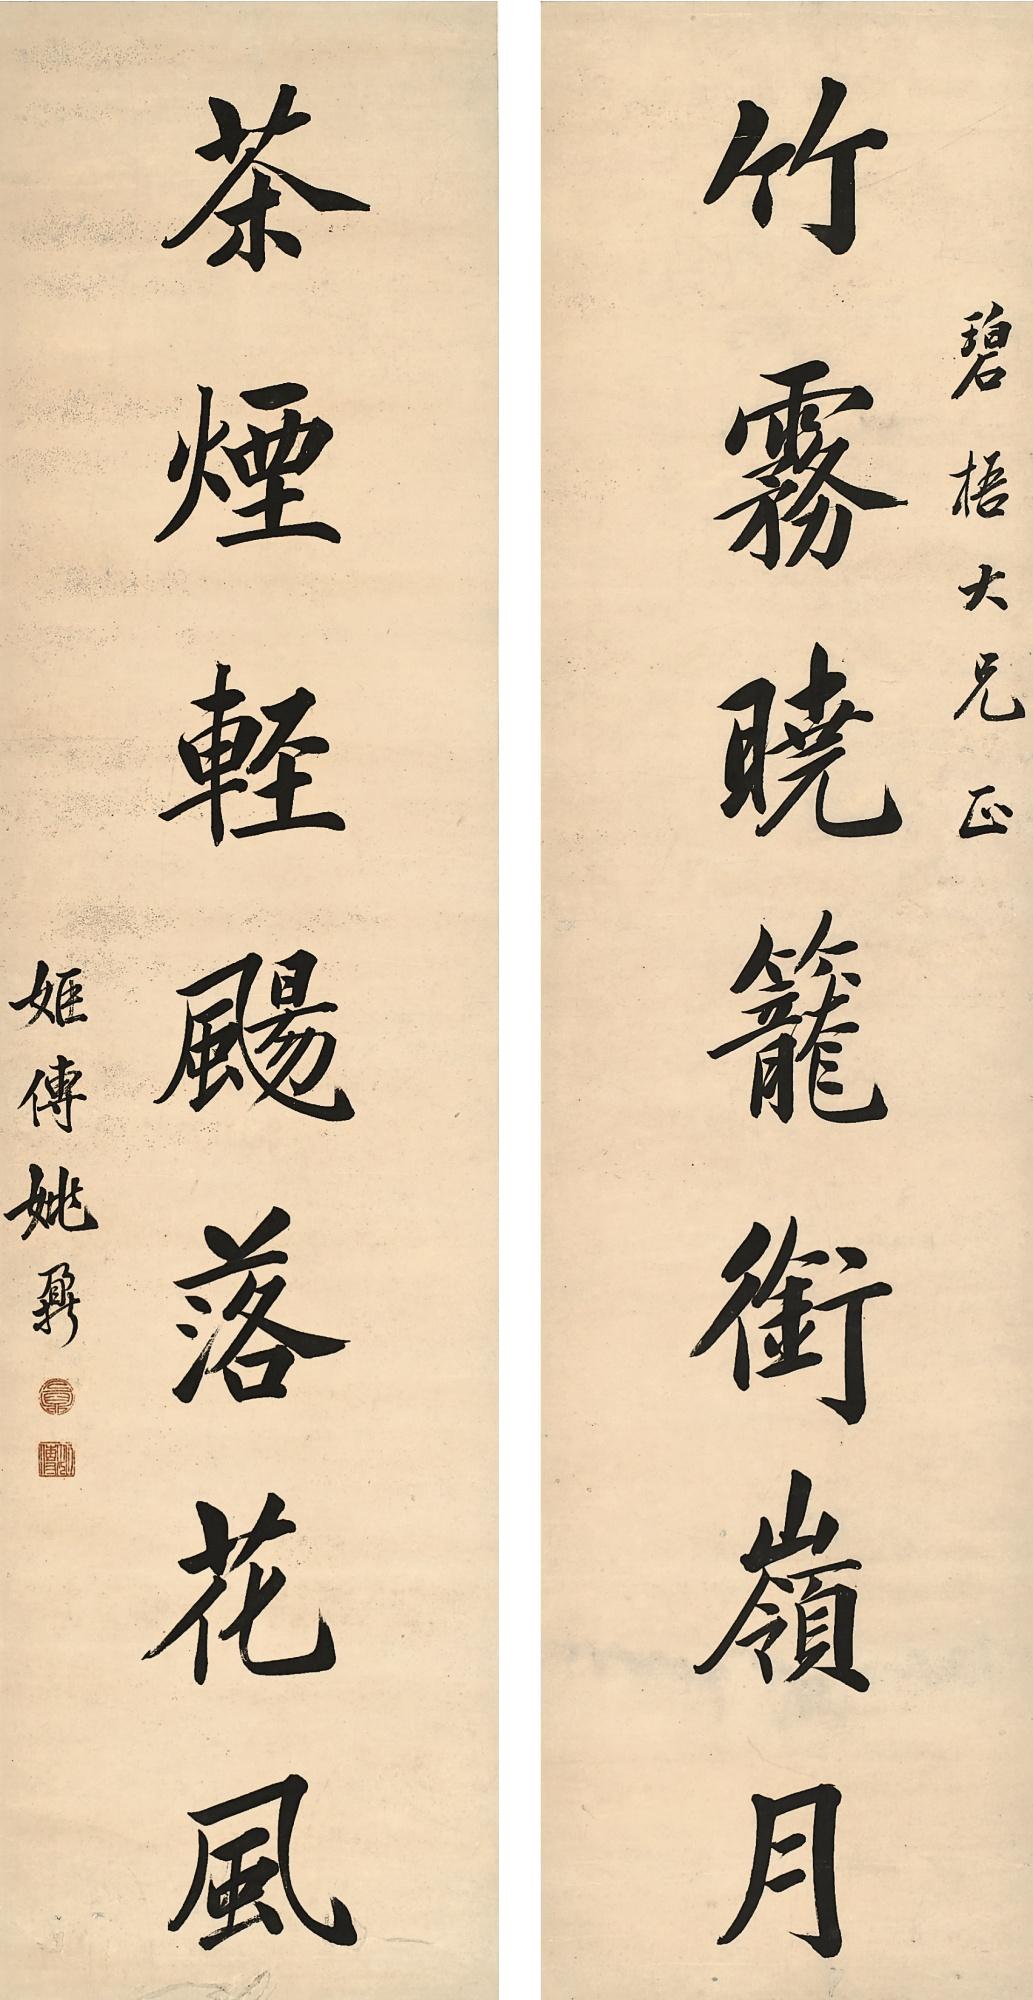 碧梧大兄正
竹霧曉籠銜嶺月
茶煙輕颺落花風
姬傳姚鼐